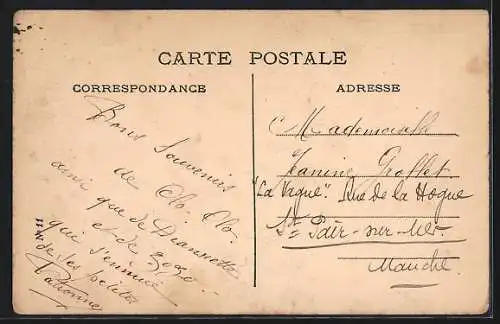 CARTE POSTALE
CORRESPONDANCE
Bons Souvenirs
de Clo-Clo
ainsi que de Diannette
et de Zozo
qui s'ennuie
de ses petites
ADRESSE
Mademoiselle
Jeanine Groffet
"La Vigue". Rue de la Hogue
St Pair-sur-Mer
Manche